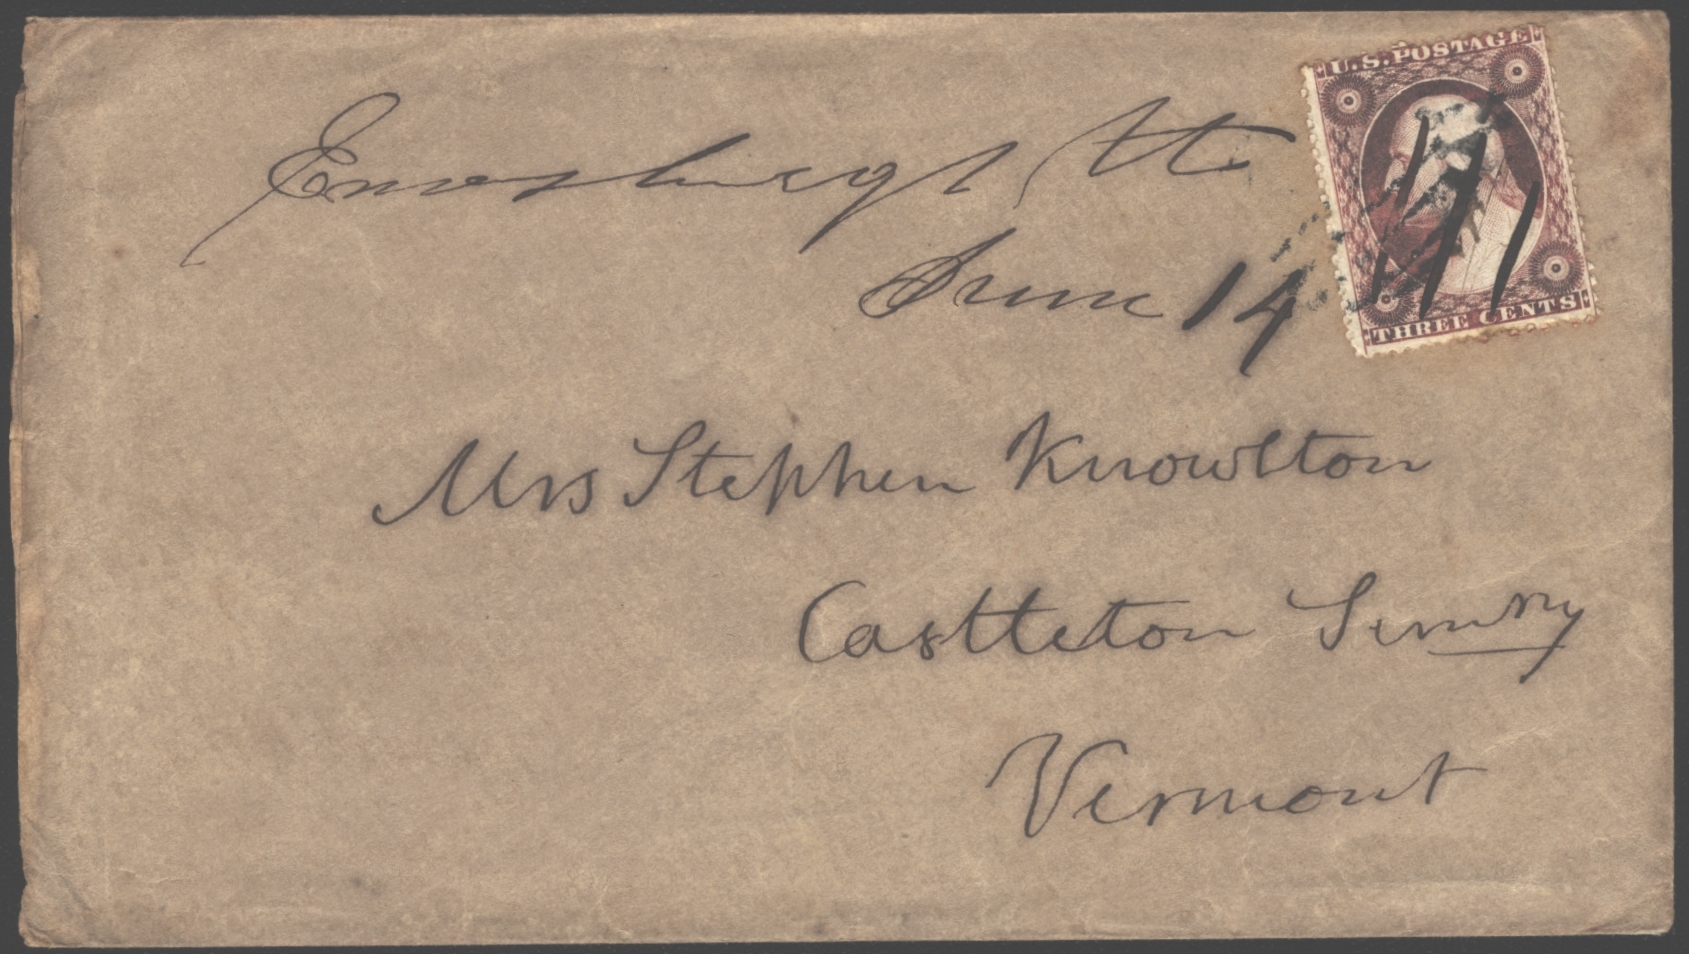 Enosburgh Vt
June 14
U.S. POSTAGE
THREE CENTS
Mrs Stephen Knowlton
Castleton Semry
Vermont